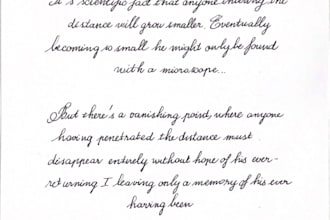 It's scientific fact that anyone entering the
distance will grow smaller. Eventually
becoming so small he might only be found
with a microscope...
But there's a vanishing point, where anyone
having penetrated the distance must
disappear entirely without hope of his ever-
returning I leaving only a memory of his ever
having been